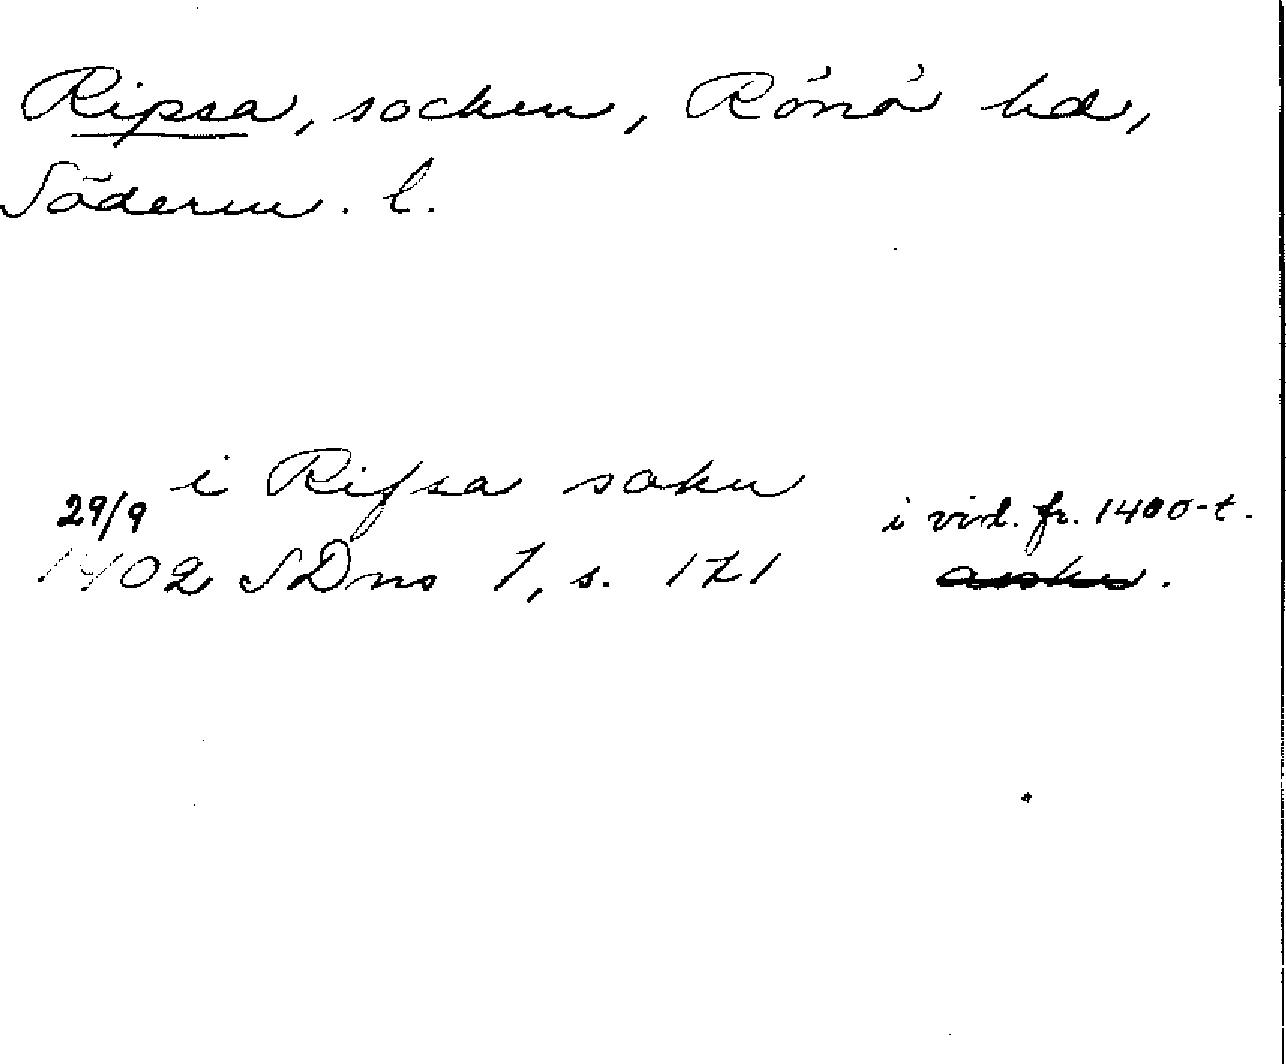 Ripsa, socken, Rönö hd,
Söderm. l.
i Rifsa sokn
29/9 i vid. fr. 1400-t.
1402 SDns 1, s. 121